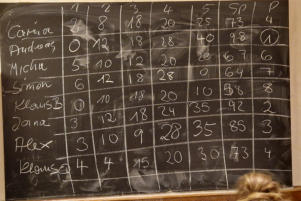 1 2 3 4 5 SP P
Carina 2 8 18 20 25 73 4
Andreas 0 12 18 28 40 98 1
Micha 5 10 12 20 20 67 6
Simon 6 12 18 28 0 64 7
Klaus 0 10 18 20 10 58 8
Jana 3 12 18 24 35 92 2
Alex 3 10 9 28 35 85 3
Klaus 4 4 15 20 30 73 4